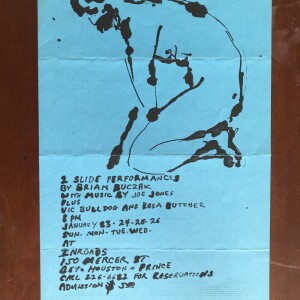 2 SLIDE PERFORMANCES
BY BRIAN BUCZAK
WITH MUSIC BY JOE JONES
PLUS
VIC BULLDOG AND ROSA BUTCHER
8 PM
JANUARY 23-24-25-26
SUN. MON. TUE. WED.
AT
INROADS
150 MERCER ST
BET. HOUSTON + PRINCE
CALL 226-6622 FOR RESERVATIONS
ADMISSION $